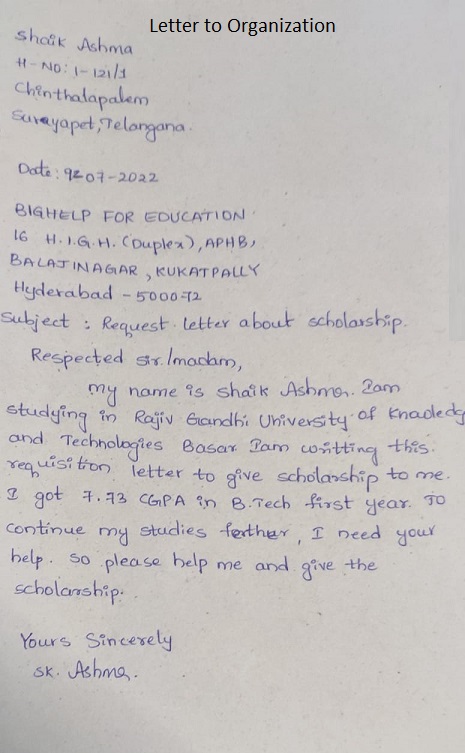 Letter to Organization
Shaik Ashma
H-NO: 1-121/1
Chinthalapalem
Surayapet, Telangana.
Date: 07-2022
BIGHELP FOR EDUCATION
16 H.I.G.H. (Duplex), APHB,
BALAJINAGAR, KUKATPALLY
Hyderabad - 500072
Subject: Request letter about scholarship.
Respected sir./madam,
my name is shaik Ashma. Iam
studying in Rajiv Gandhi University of Knaoledg
and Technologies Basar Iam writting this.
requisition letter to give scholarship to me.
I got 7.73 CGPA in B.Tech first year. To
continue my studies farther, I need your
help. so please help me and give the
scholarship.
Yours Sincerely
SK. Ashma.